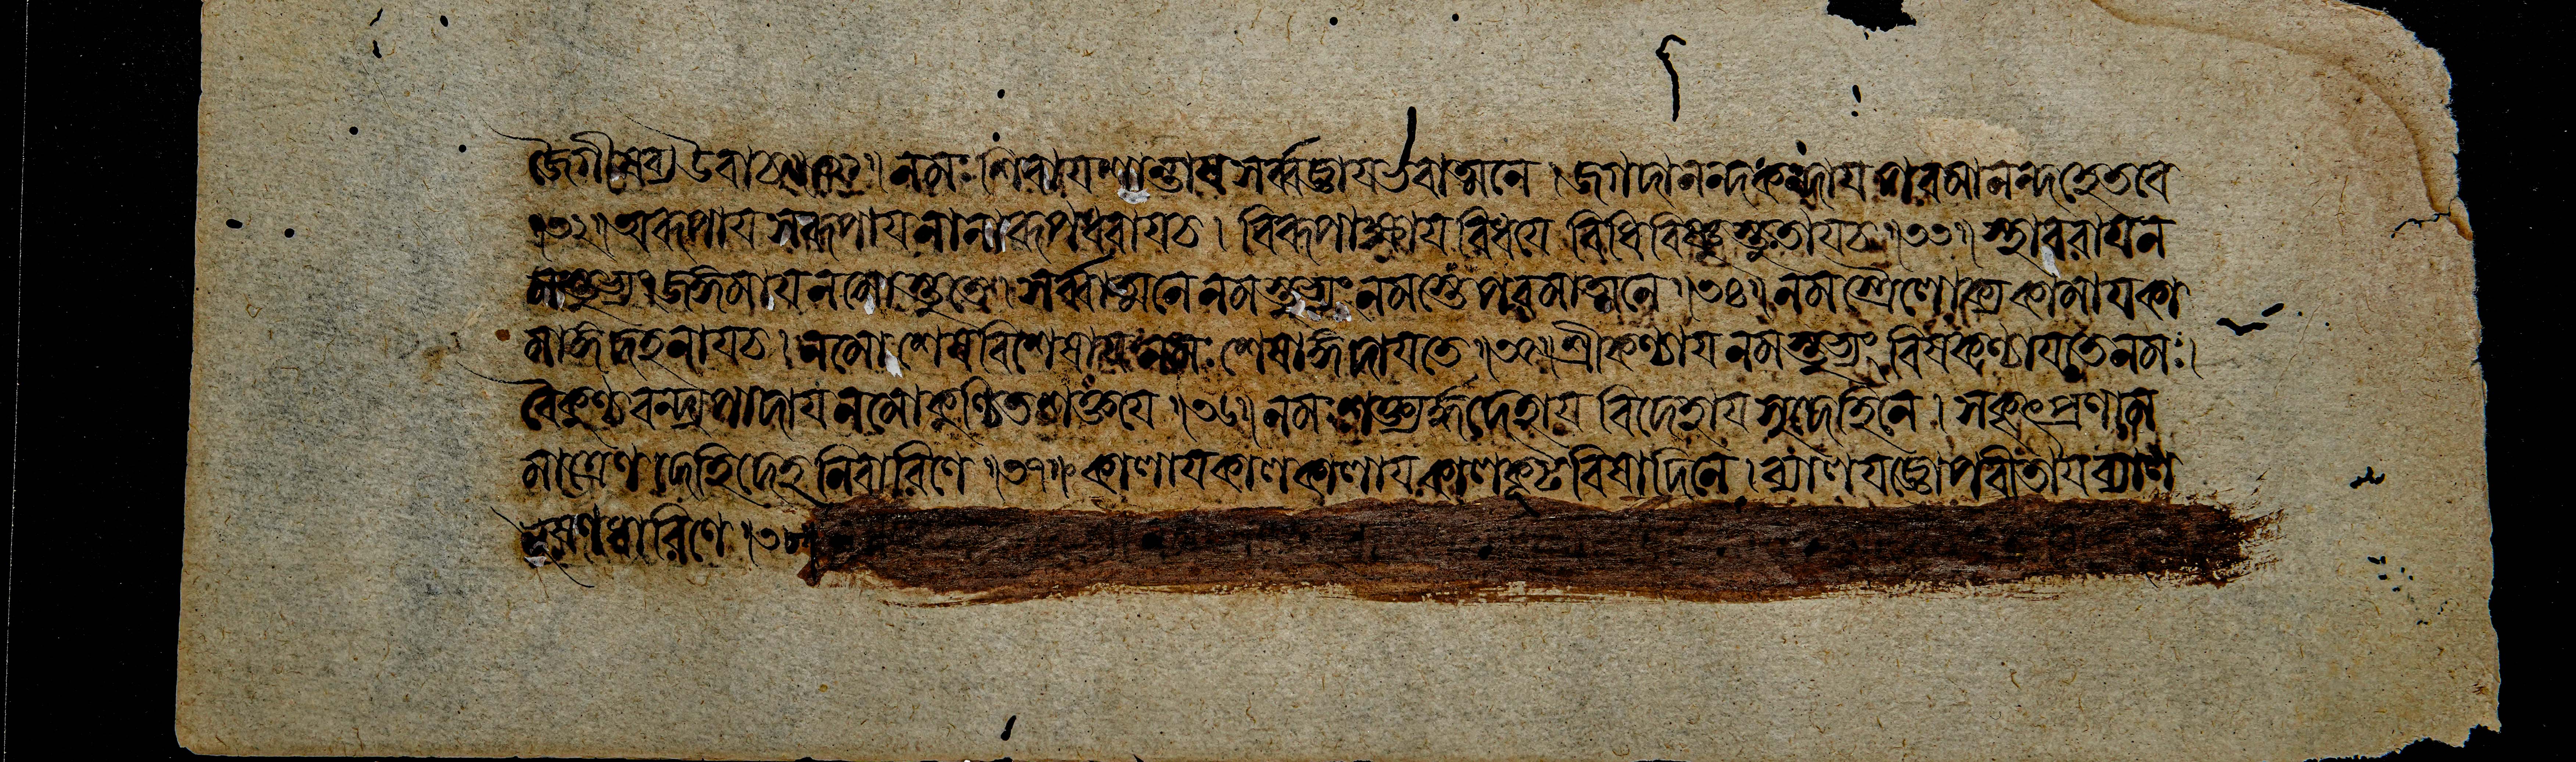 জৈগীষব্য উবাচ॥ নমঃ শিবায় শান্তায় সর্ব্বজ্ঞায় শুবাত্মনে । জগদানন্দকন্দায় পরমানন্দহেতবে
॥৩২॥ অরূপায় সরূপায় নানারূপধরায় চ । বিরূপাক্ষায় বিধয়ে বিধিবিষ্ণুস্তুতায় চ ॥৩৩॥ স্থাবরায় ন
মস্তুভ্যং জঙ্গমায় নমোস্তু তে । সর্ব্বাত্মনে নমস্তুভ্যং নমস্তে পরমাত্মনে ॥৩৪॥ নমস্ত্রৈলোক্যকামায় কা
মাঙ্গদহনায় চ । নমো শেষবিশেষায় নমঃ শেষাঙ্গদায় তে ॥৩৫॥ শ্রীকণ্ঠায় নমস্তুভ্যং বিষকণ্ঠায় তে নমঃ ।
বৈকুণ্ঠবন্দ্যপাদায় নমো কুণ্ঠিতশক্তয়ে ॥৩৬॥ নমঃ শক্ত্যর্দ্ধদেহায় বিদেহায় সুদেহিনে । সকৃৎপ্রণাম
মাত্রেণ দেহিদেহনিবারিণে ॥৩৭॥ কালায় কালকালায় কালকূটবিষাদিনে । ব্যালযজ্ঞোপবীতায় ব্যাল
ভূষণধারিণে ॥৩৮॥